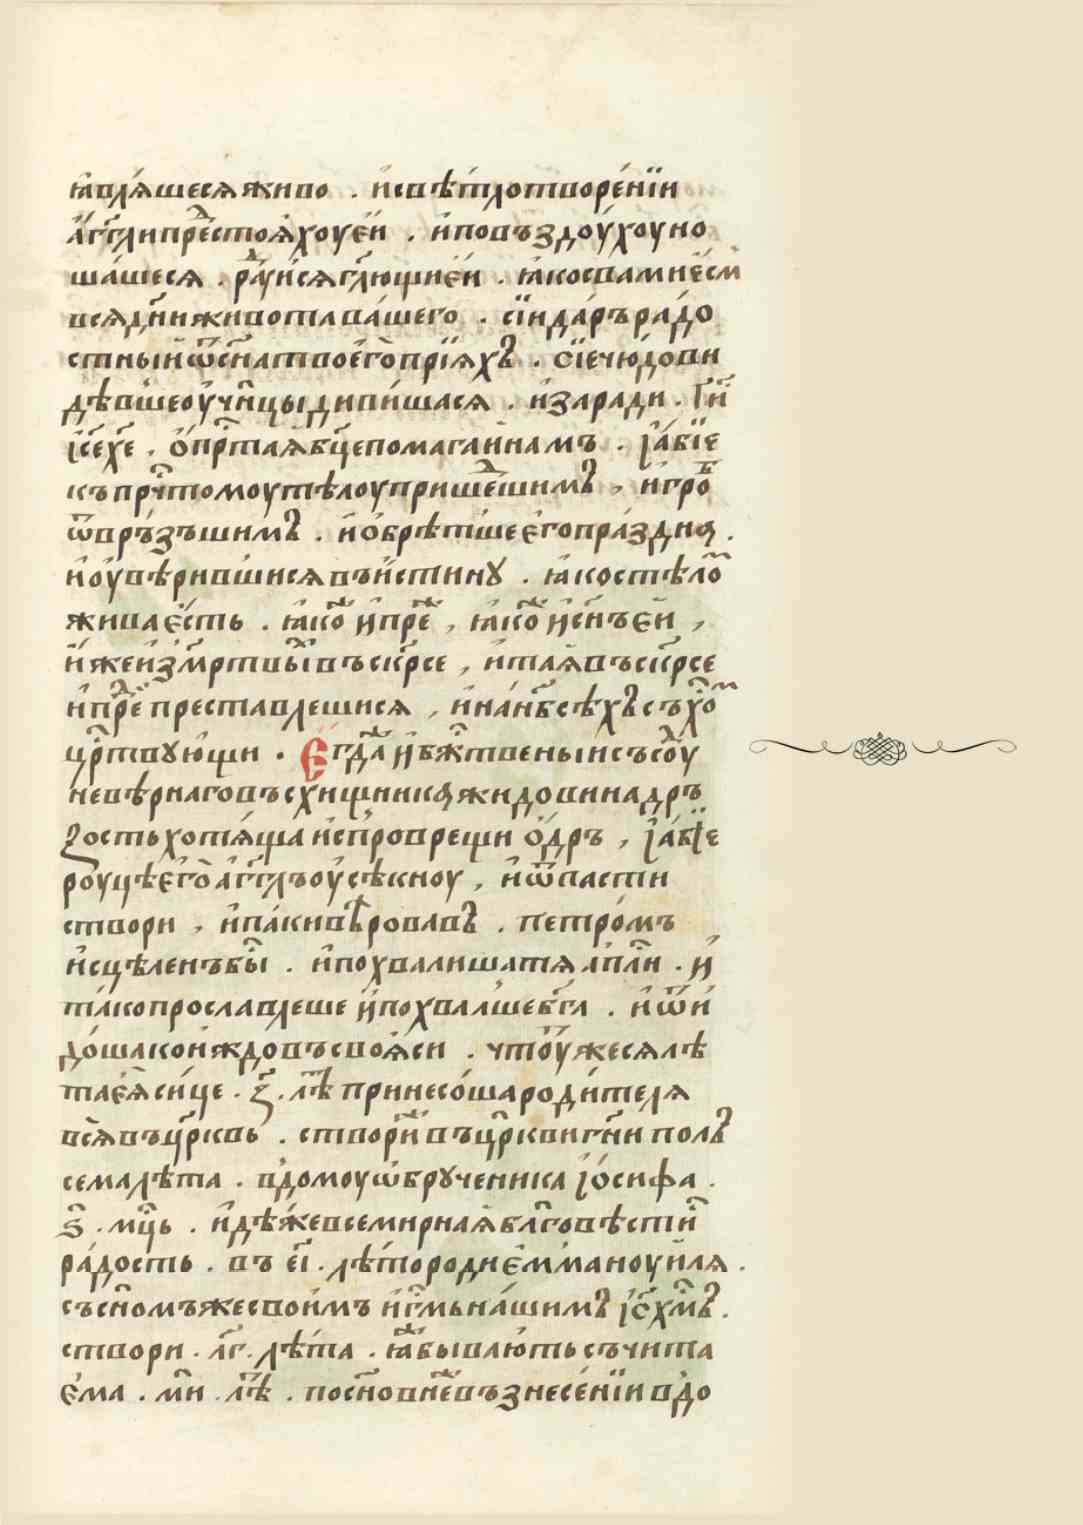 ꙗвлѧ́шесѧ живо . и҆свѣ́тлотворе́нїи
а҆́гг҃липрⷣестоѧ́хоуе҆́и . и҆повъздоу́хоуно
ша́шесѧ . ра́ⷣуисѧгл҃ющиїе҆́и . ꙗ҆косвамиїе҆́смⸯ
всѧдн҃иживотава́шего . сїида́ръра́до
стныиѿсн҃атвоего̀прїѧ́хъ . сїечю́дови
дѣ́вшеоу҆чн҃цыдиви́шасѧ . и҆зара́ди . Гⷭ҇и
і҆с҃ех҃е . ѻ҆прⷭ҇таѧбц҃епомага́инамъ . і҆а́бїе
къпрчⷭ҇томоутѣлоуприше́ⷣшимъ , и҆гро́ⷠ
ѿвръ́зъшимъ . и҆ѻ҆брѣ́тшеего̀пра́здиѧ .
и҆оу҆вѣ́рившисѧвъи́стинꙋ . ꙗ҆костѣ́ло́ⷨ
живаѐсть . ꙗ҆ко́ⷤ и҆пре́ⷤ , ꙗ҆ко́ⷤ и҆сн҃ъе҆́и ,
и҆́жеи҆змр҃твы́ⷯвъскр҃се , и҆таѧ́въскр҃се
и҆пре́ⷤпреставлешисѧ , и҆на́нб҃сѣ́хъсъхо́ⷨ
црⷭ҇твꙋю́щи . Є҆гда́ⷤ и҆бж҃твеныисъсо́ⷣу
невѣ́рнаговъсхищникѧжидовинадръ
ꙁостьхотѧ́ща и҆спроврещи ѻ҆́дръ , і҆а́бїе
роуцѣего̀а҆́гг҃лъоу҆сѣкноу , и҆ѿпасти
створи , и҆па́кивѣ́ровавъ . петро́мъ
и҆сцѣленъбы́ⷭ . и҆похвалишатѧ а҆пⷭ҇ли . и҆
та́копрославлеше и҆похвалше́бг҃а . и҆ѿи҆
до́шакои́ждовъсвоѧ́си . что́ⷤужесѧлѣ
таеѧ̀си́це . ꙁ҃ . лѣ́ⷮ принесо́шароди́телѧ
всѧ̀въцр҃ковь . створи́ⷤвъцр҃квигн҃и полъ
семалѣ́та . вдомоуѡ҆брꙋченика і҆ѻ́сифа .
ѕ҃ . мцⷭ҇ь . и҆дѣ́жевсемирнаѧблг҃овѣсти́ⷭ
ра́дость . въ е҃і . лѣ́тородиє҆мманоу́илѧ .
съсн҃омъжесвои́мъ и҆гмⷭ҇ьна́шимъ і҆с҃хмⷭ҇ъ .
створи . л҃г . лѣ́та . ꙗ҆́ⷤбываю́тьсъчита
є҆ма . м҃и . лѣ́ⷮ . посн҃овне́ⷨвъзнесе́нїивдо